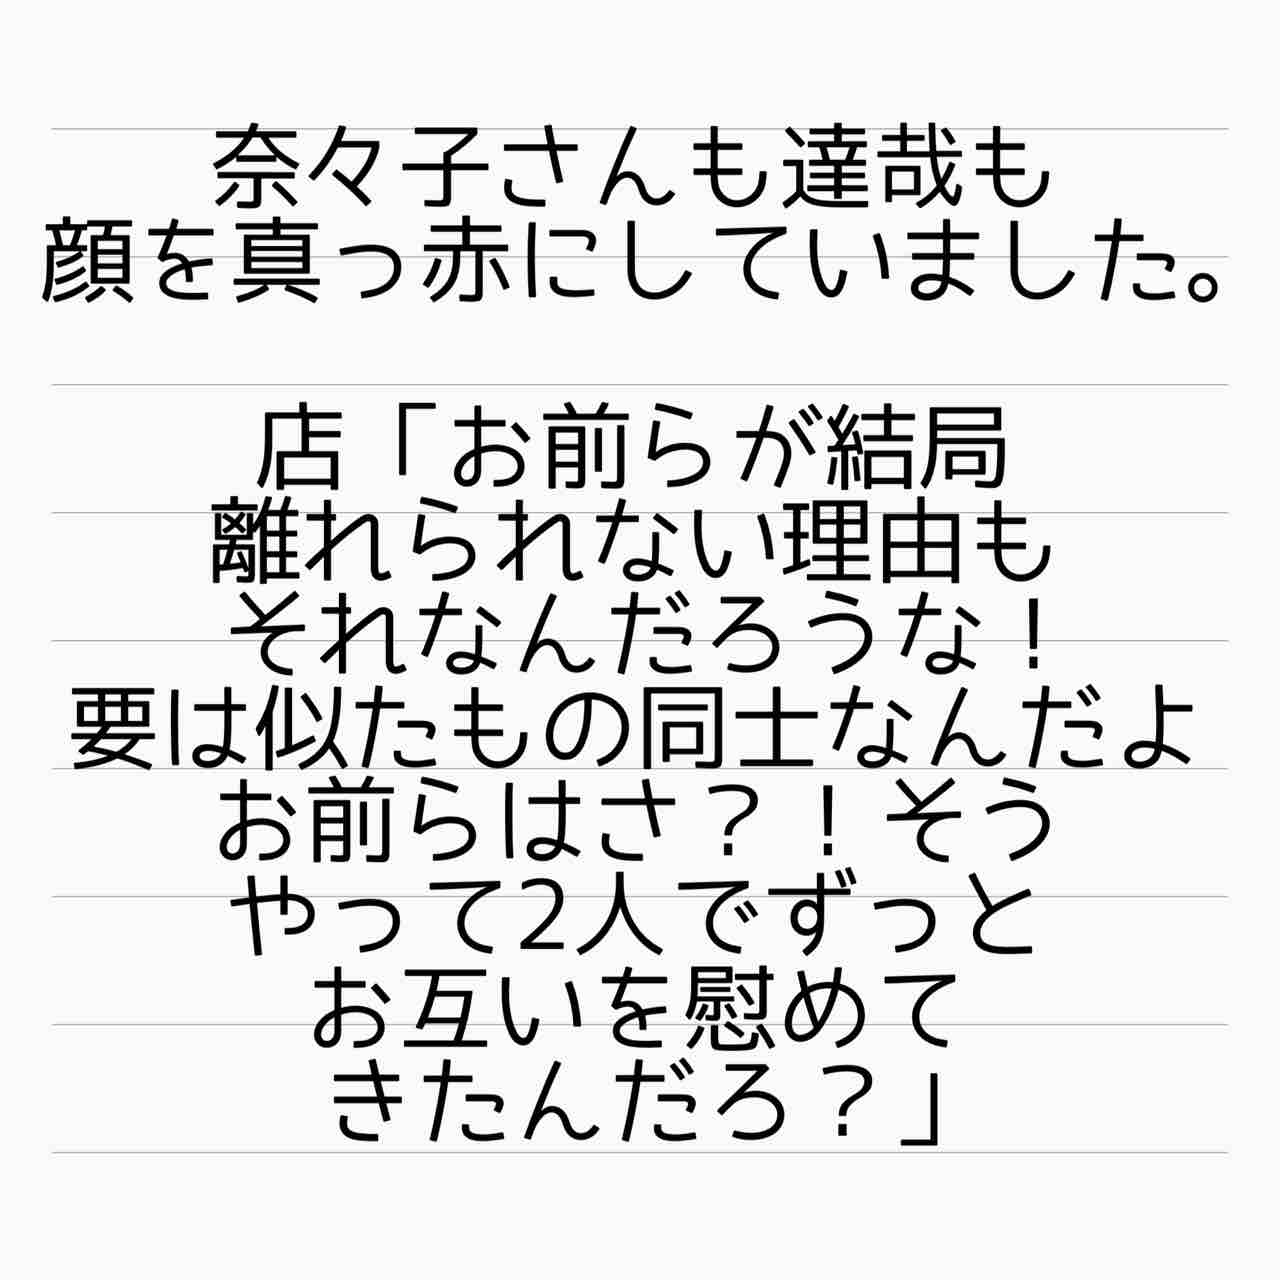 奈々子さんも達哉も
顔を真っ赤にしていました。
店「お前らが結局
離れられない理由も
それなんだろうな！
要は似たもの同士なんだよ
お前らはさ？！そう
やって2人でずっと
お互いを慰めて
きたんだろ？」